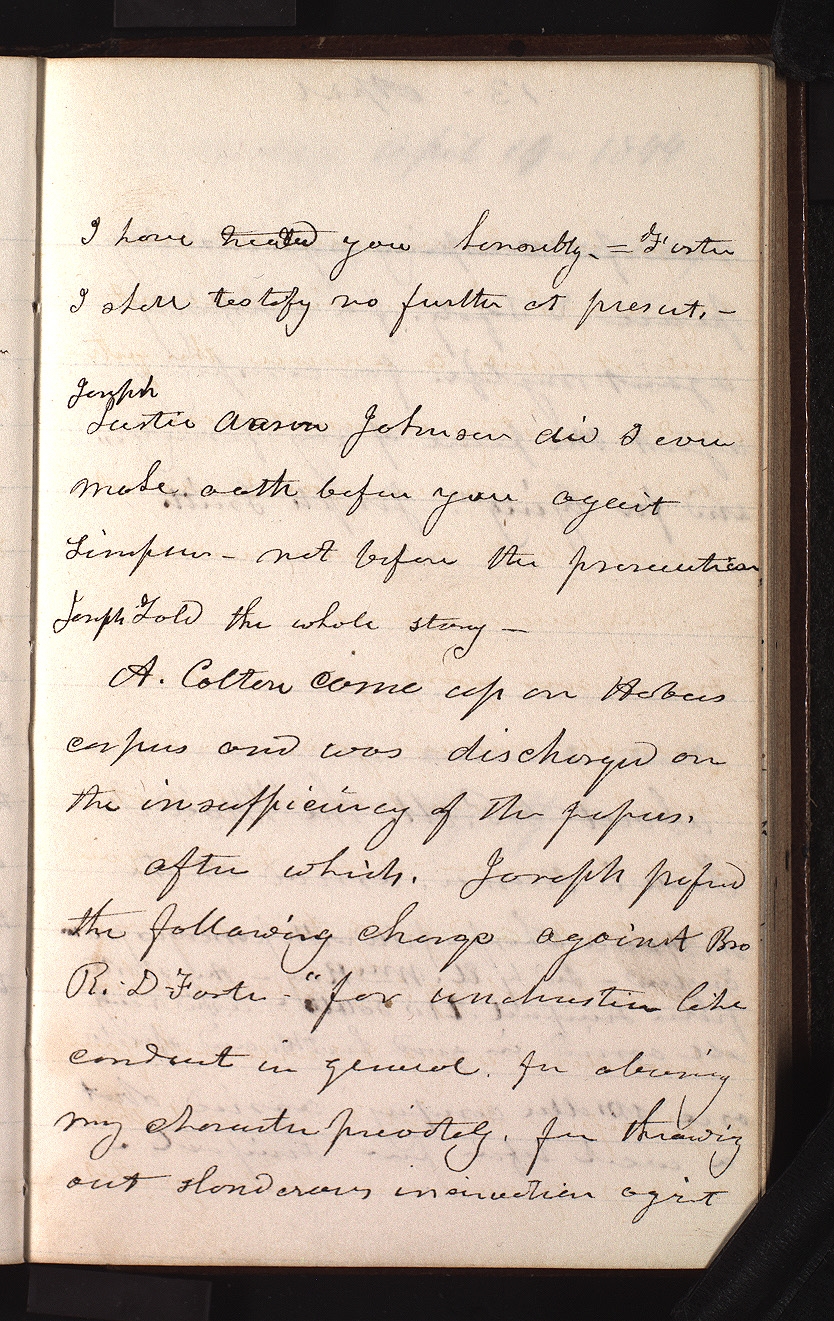 I have treated you honorably. = Foster
I shall testify no further at present. –
Joseph
Justice Aaron Johnson did I ever
make oath before you against
Simpson – not before the prosecution
Joseph Told the whole story –
A. Colton came up on Habeus
corpus and was discharged on
the insufficiency of the papers.
after which. Joseph prefred
the following charge against Bro
R. D Foster – "for unchristian like
conduct in general. for abusing
my character privately. for throwing
out slanderous insinuation agist